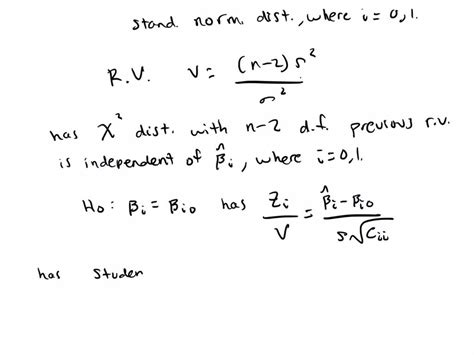 stand. norm. dist., where i = 0,1.
R.V. V = (n-2) s² / σ²
has χ² dist. with n-2 d.f. previous r.v.
is independent of β̂i, where i=0,1.
Ho: βi = βio has Zi / V = β̂i - βio / s√Cii
has Studen